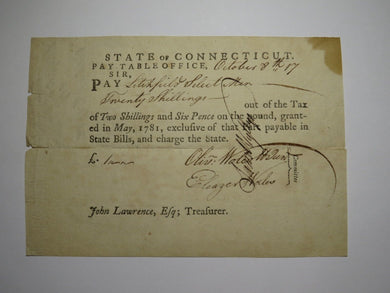 STATE OF CONNECTICUT.
PAY TABLE OFFICE, October 8th 17
SIR,
PAY Litchfield Select Men
Twenty Shillings
out of the Tax
of Two Shillings and Six Pence on the pound, grant-
ed in May, 1781, exclusive of that Part payable in
State Bills, and charge the State.
Committee
Eleazer Wales
John Lawrence, Esq; Treasurer.